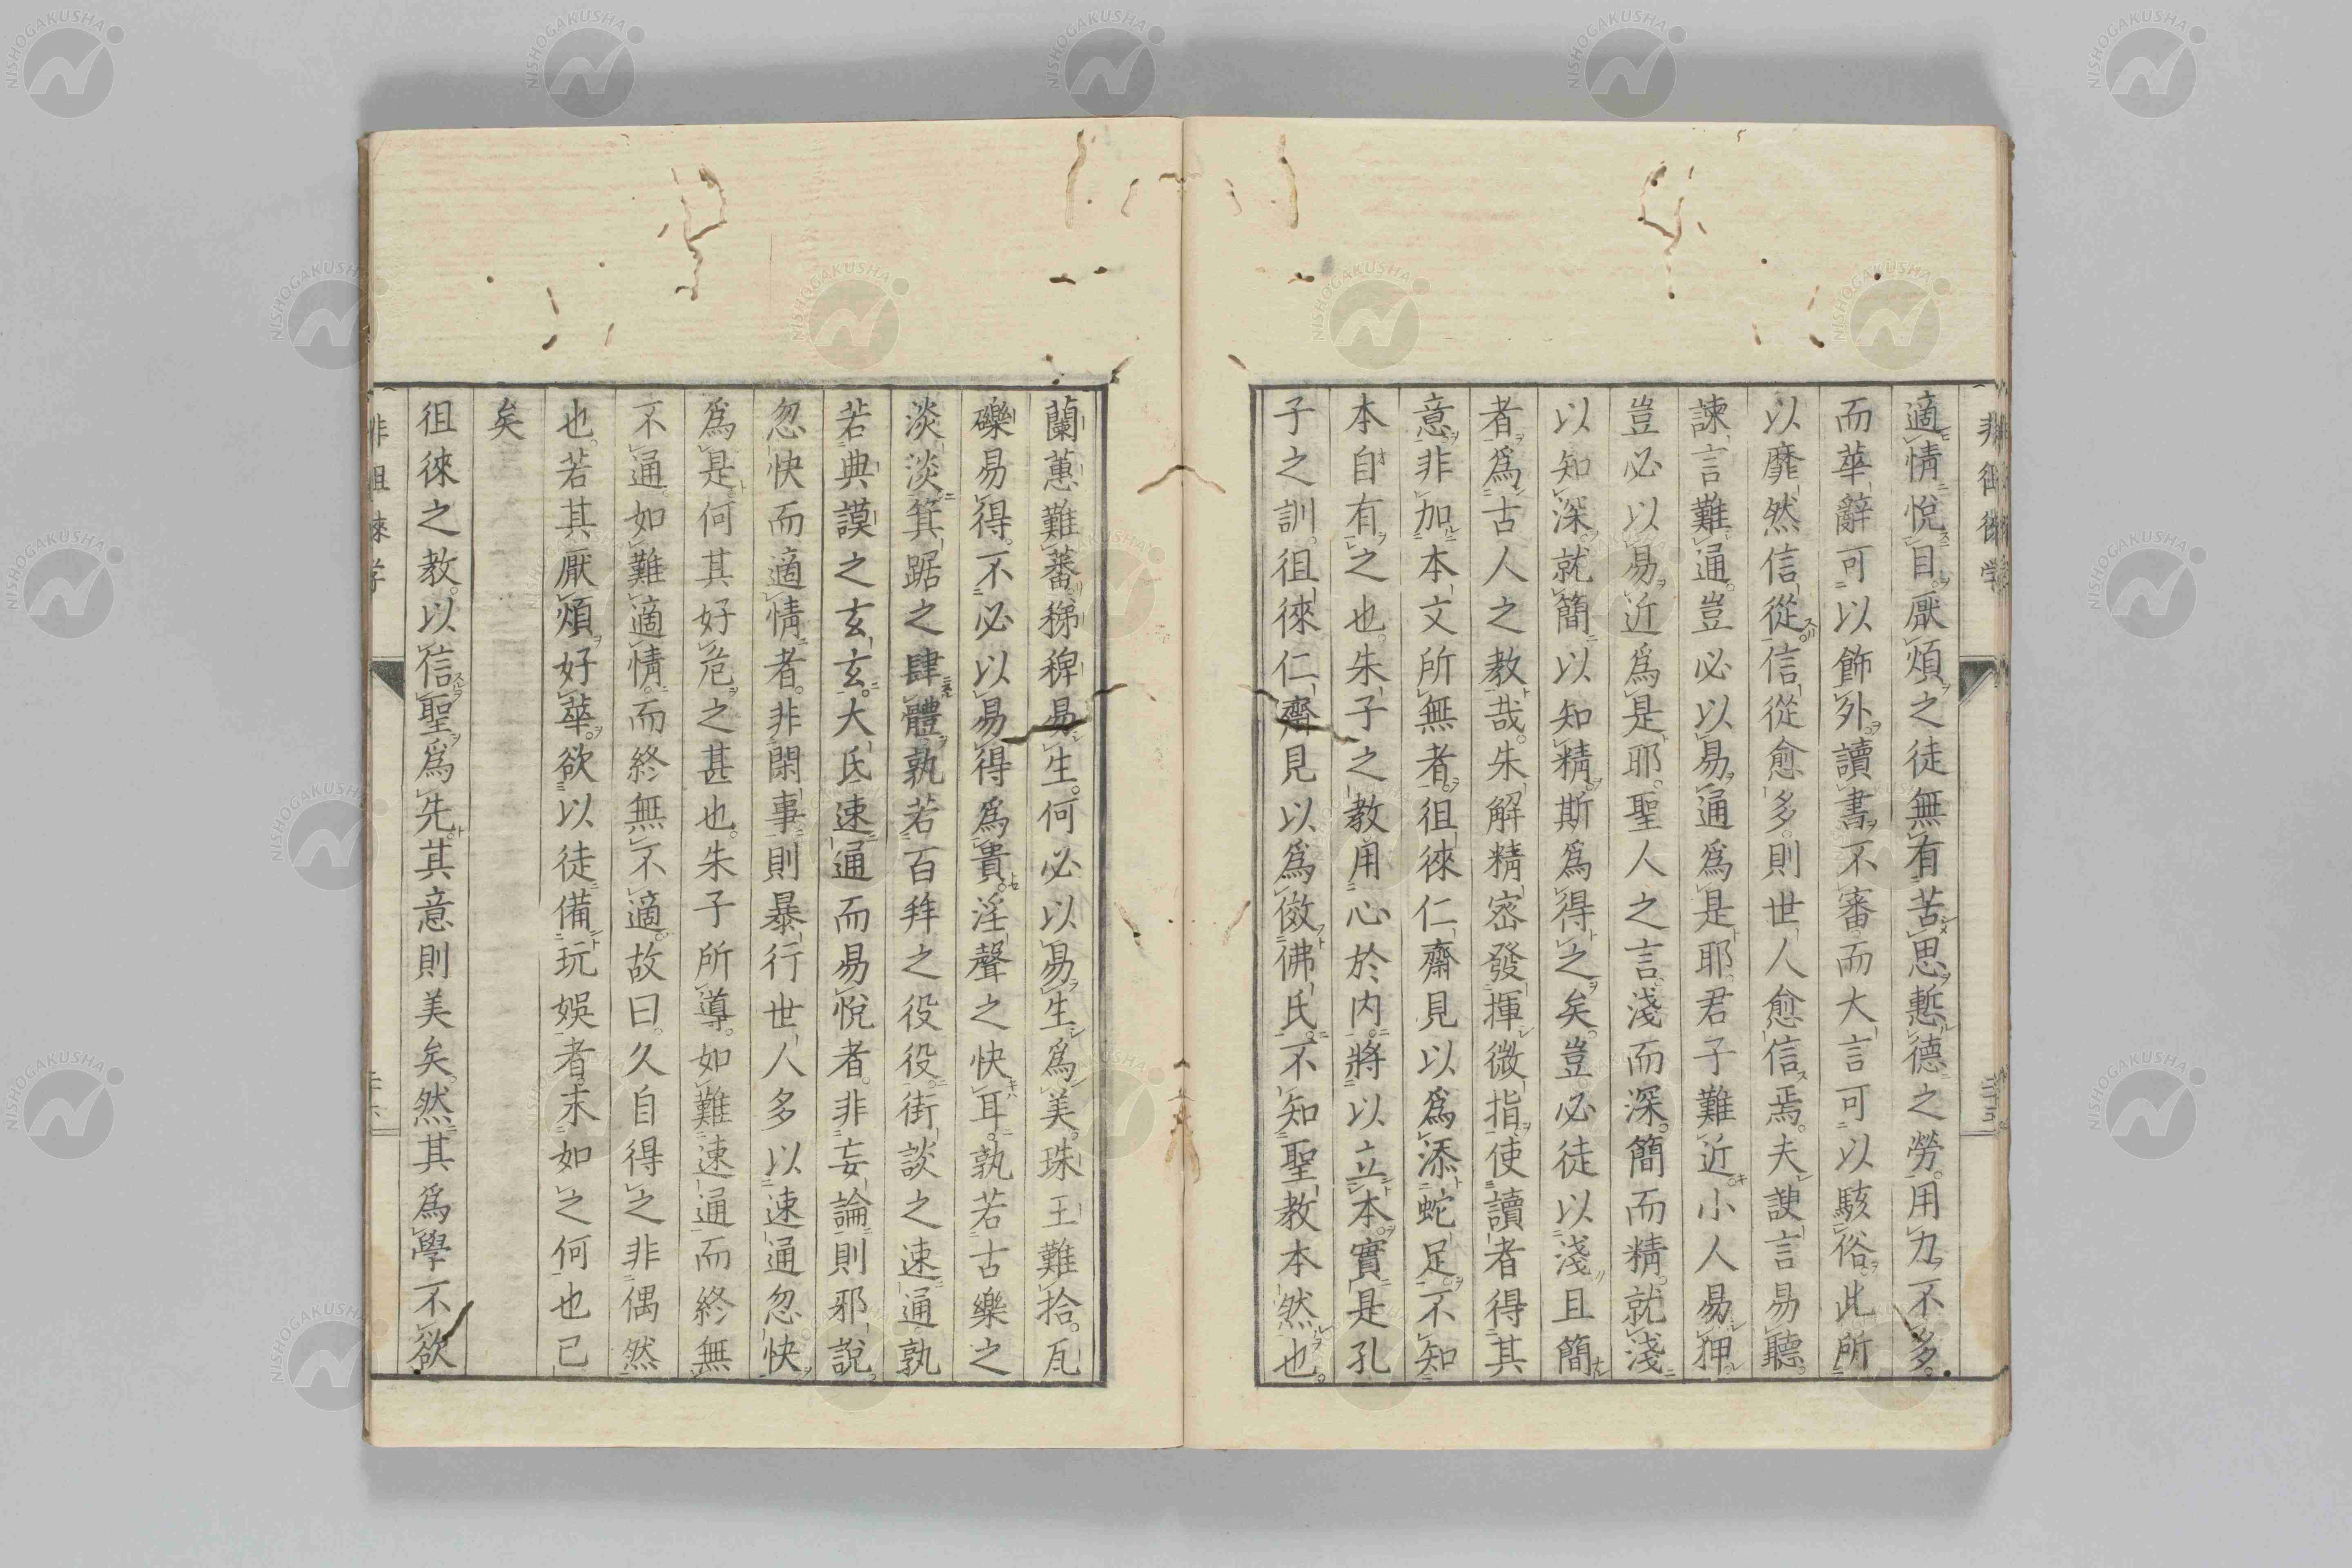 適情悅目。厭煩之徒無有苦思慙德之勞。用力不多。
而華辭可以飾外。讀書不審。而大言可以駭俗。此所
以靡然信從。信從愈多。則世人愈信焉。夫諛言易聽。
諫言難通。豈必以易通爲是耶。君子難近。小人易狎。
豈必以易近爲是耶。聖人之言。淺而深。簡而精。就淺
以知深。就簡以知精。斯爲得之矣。豈必徒以淺且簡
者爲古人之教哉。朱解精密發揮微指。使讀者得其
意。非加本文所無者。徂徠仁齋見以爲添蛇足。不知
本自有之也。朱子之教用心於內。將以立本。實是孔
子之訓。徂徠仁齋見以爲倣佛氏。不知聖教本然也。
蘭蕙難蕃。稊稗易生。何必以易生爲美。珠玉難拾。瓦
礫易得。不必以易得爲貴。淫聲之快耳。孰若古樂之
淡淡。箕踞之肆體。孰若百拜之役役。街談之速通。孰
若典謨之玄玄。大氐速通而易悅者。非妄論則邪說。
忽快而適情者。非閑事則暴行。世人多以速通忽快
爲是。何其好危之甚也。朱子所導。如難速通而終無
不通。如難適情。而終無不適。故曰。久自得之。非偶然
也。若其厭煩好華。欲以徒備玩娛者。末如之何也已
矣
徂徠之教。以信聖爲先。其意則美矣。然其爲學不欲
非徂徠学